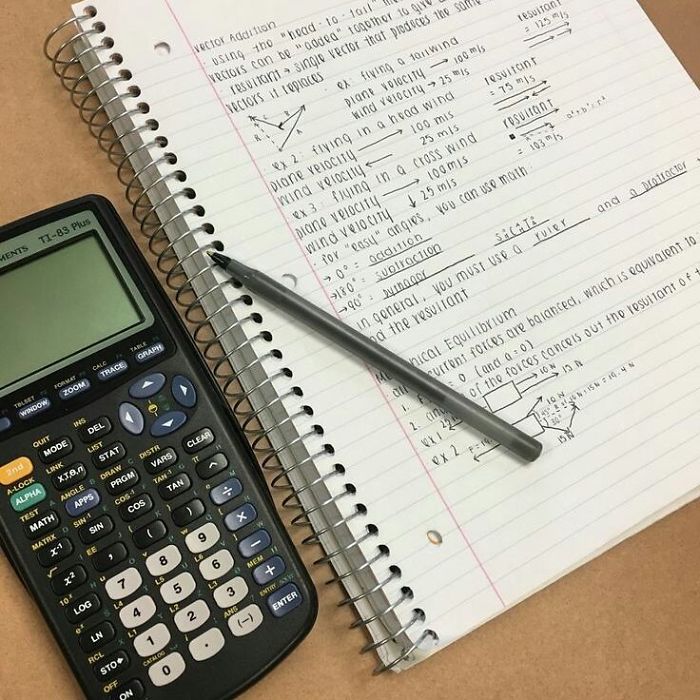 vector Addition
· using the "head-to-tail"
vectors can be "added" together to give a
· resultant → single vector that produces the same
vectors it replaces
resultant
= 125 m/s
ex: flying a tailwind
plane velocity → 100 m/s
wind velocity → 25 m/s
resultant
= 75 m/s
ex 2: flying in a head wind
plane velocity → 100 m/s
wind velocity ← 25 m/s
resultant
a²+b²=c²
= 103 m/s
ex 3: flying in a cross wind
plane velocity → 100 m/s
wind velocity ↓ 25 m/s
for "easy" angles, you can use math:
→ 0° = addition
→ 180° = subtraction
→ 90° =
in general, you must use a ruler and a protractor
the resultant
Equilibrium
forces are balanced, which is equivalent to
1. = 0 (and a = 0)
2. of the forces cancels out the resultant of
ex 1 10N 15N
ex 2 10N 15N
TI-83 Plus
TBLSET FORMAT CALC TABLE
WINDOW ZOOM TRACE GRAPH
QUIT INS
2nd MODE DEL
A-LOCK LINK LIST
ALPHA X,T,θ,n STAT
TEST ANGLE DRAW DISTR
MATH APPS PRGM VARS CLEAR
MATRX SIN⁻¹ COS⁻¹ TAN⁻¹
x⁻¹ SIN COS TAN ^
√ EE
x² , ( ) ÷
10ˣ
LOG 7 8 9 ×
eˣ L4 L5 L6
LN 4 5 6 −
RCL L1 L2 L3 MEM
STO▸ 1 2 3 +
OFF CATALOG ANS ENTRY
ON 0 . (−) ENTER